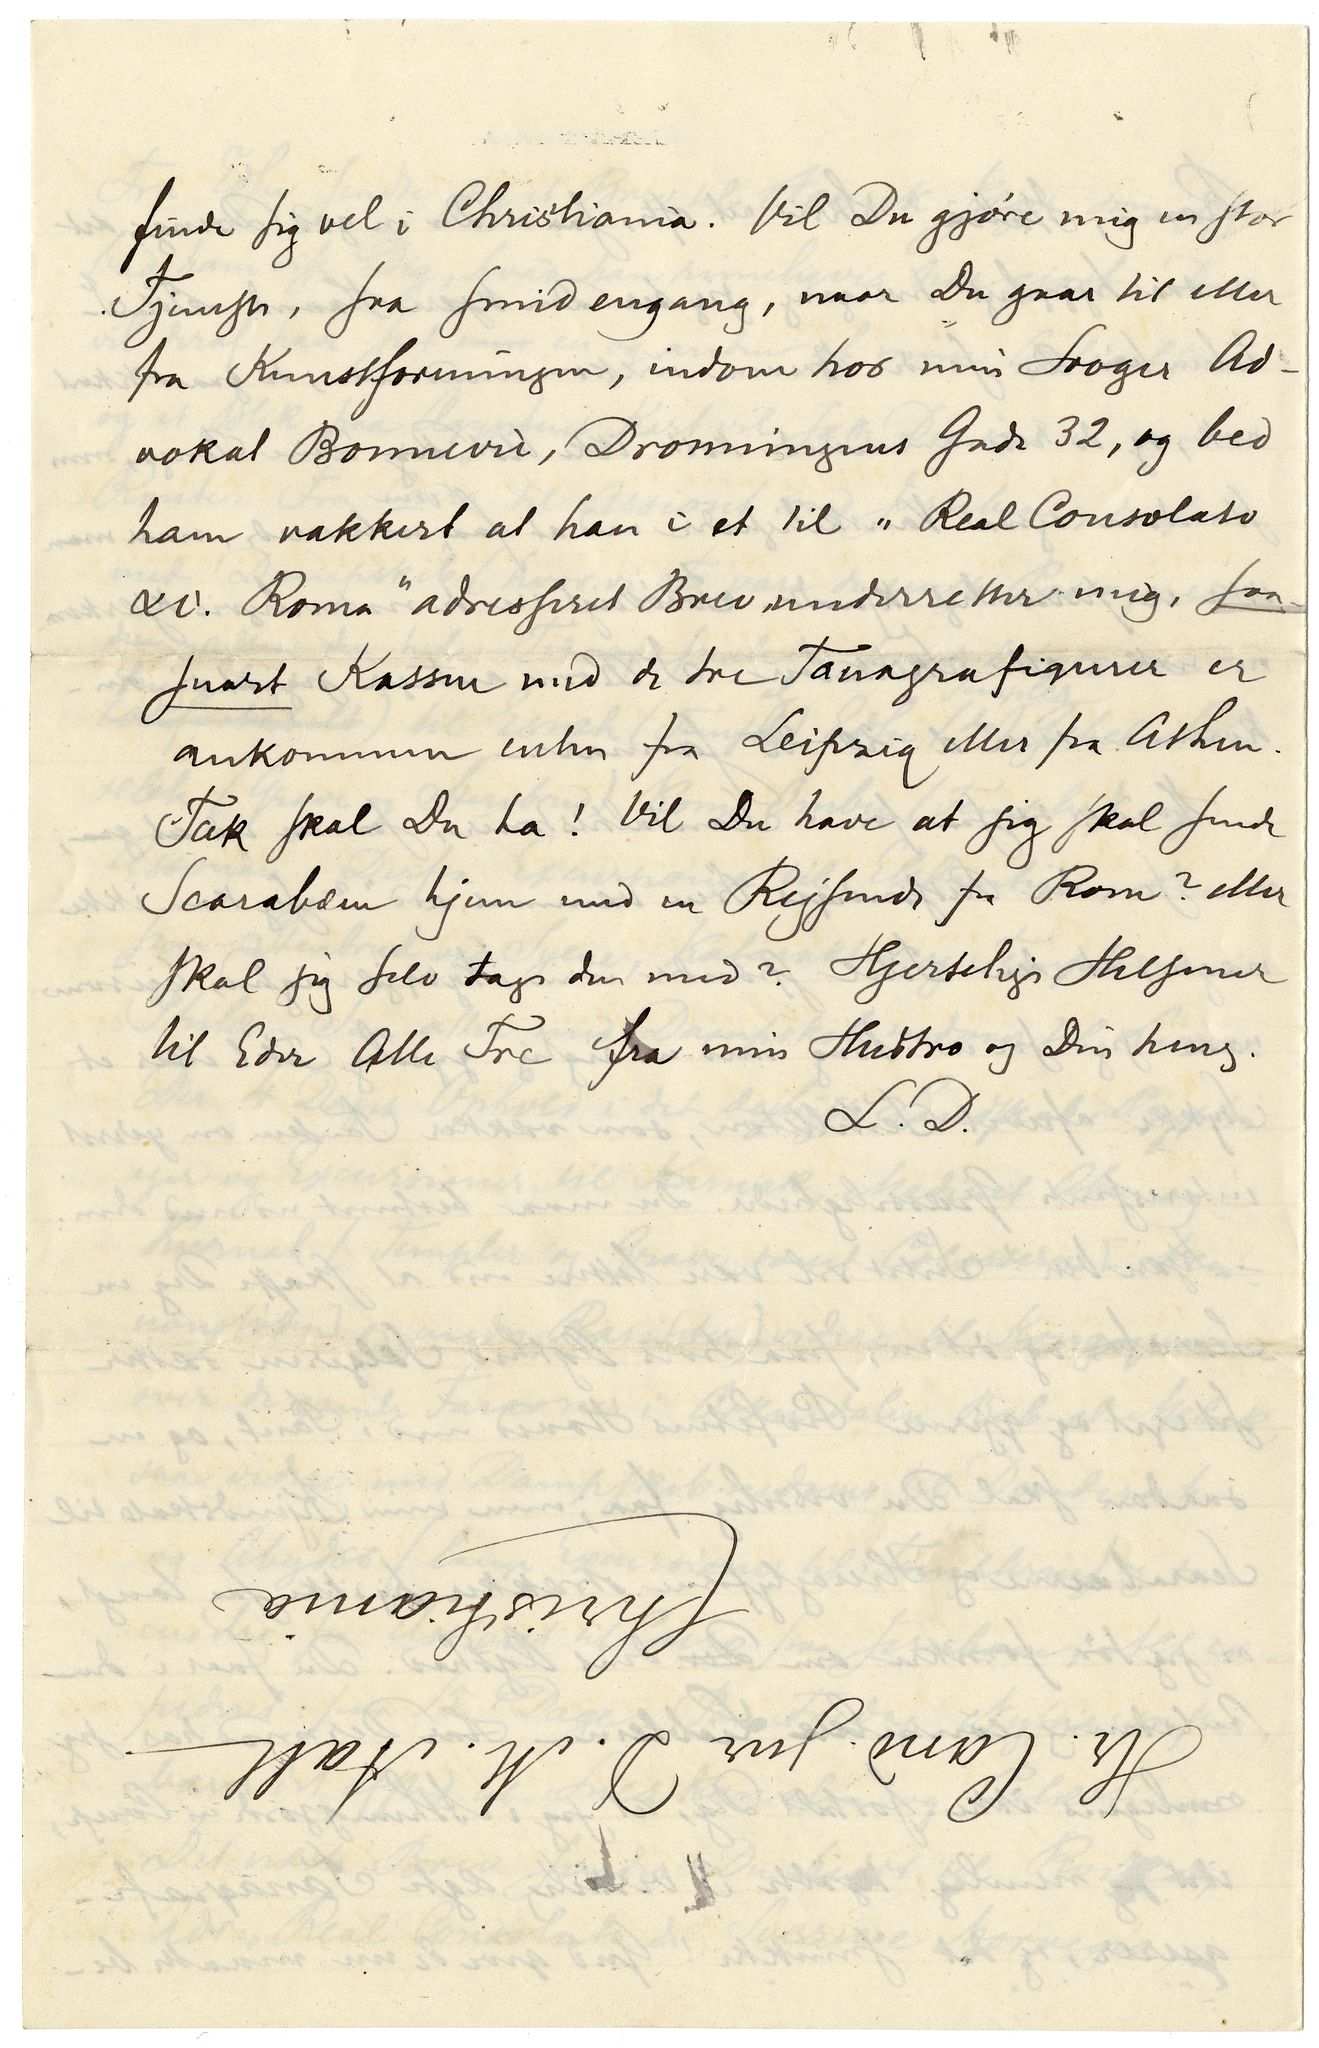 finde sig vel i Christiania. Vil Du gjöre mig en stor
Tjeneste, saa smid engang, naar Du gaar til eller
fra Kunstforeningen, indom hos min Svoger Ad-
vokat Bonnevie, Dronningens Gade 32, og bed
ham vakkert at han i et til "Real Consolato
&c. Roma" adresseret Brev underretter mig, saa-
snart Kassen med de tre Tanagrafigurer er
ankommen enten fra Leipzig eller fra Athen.
Tak skal Du ha! Vil Du have at jeg skal sende
Scarabæen hjem med en Rejsende fra Rom? eller
skal jeg selv tage den med? Hjertelige Hilsener
til Eder Alle Tre fra min Hustro og Din heng.
L. D.
Hr. Cand. jur D. M. Aall
Christiania